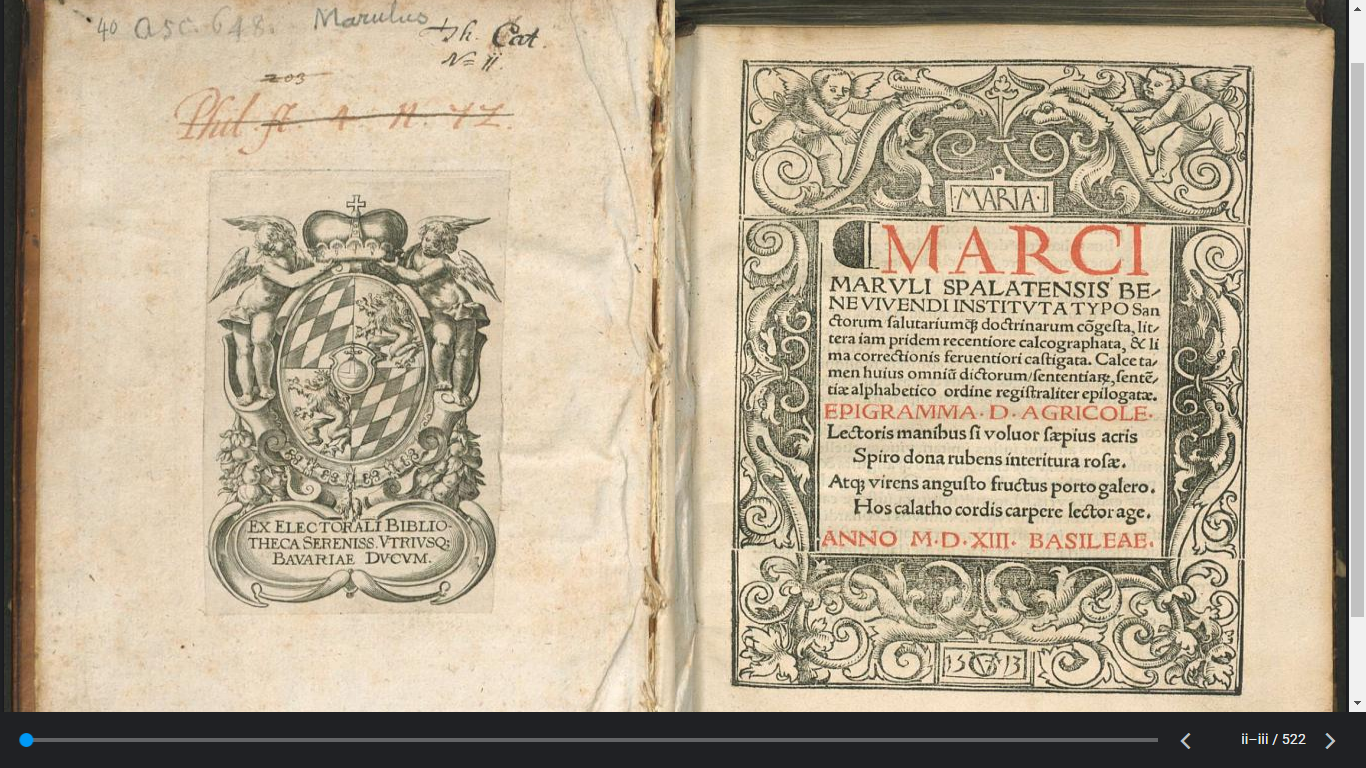 4° Asc. 648. Marulus
Th. Cat.
N= II.
203
Phil. fl. 4 N. 42.
EX ELECTORALI BIBLIO-
THECA SERENISS. VTRIVSQ;
BAVARIAE DVCVM.
MARIA·
¶MARCI
MARVLI SPALATENSIS BE-
NE VIVENDI INSTITVTA TYPO San
ctorum salutariumq̃ꝫ doctrinarum cõgesta, lit-
tera iam pridem recentiore calcographata, & li
ma correctionis feruentiori castigata. Calce ta-
men huius omniũ dictorum/sententiaꝝ, sentẽ-
tiæ alphabetico ordine registraliter epilogatæ.
EPIGRAMMA· D· AGRICOLE·
Lectoris manibus si voluor sæpius acris
Spiro dona rubens interitura rosæ.
Atqꝫ virens angusto fructus porto galero.
Hos calatho cordis carpere lector age.
ANNO M·D·XIII· BASILEAE.
15 VG 13
ii–iii / 522